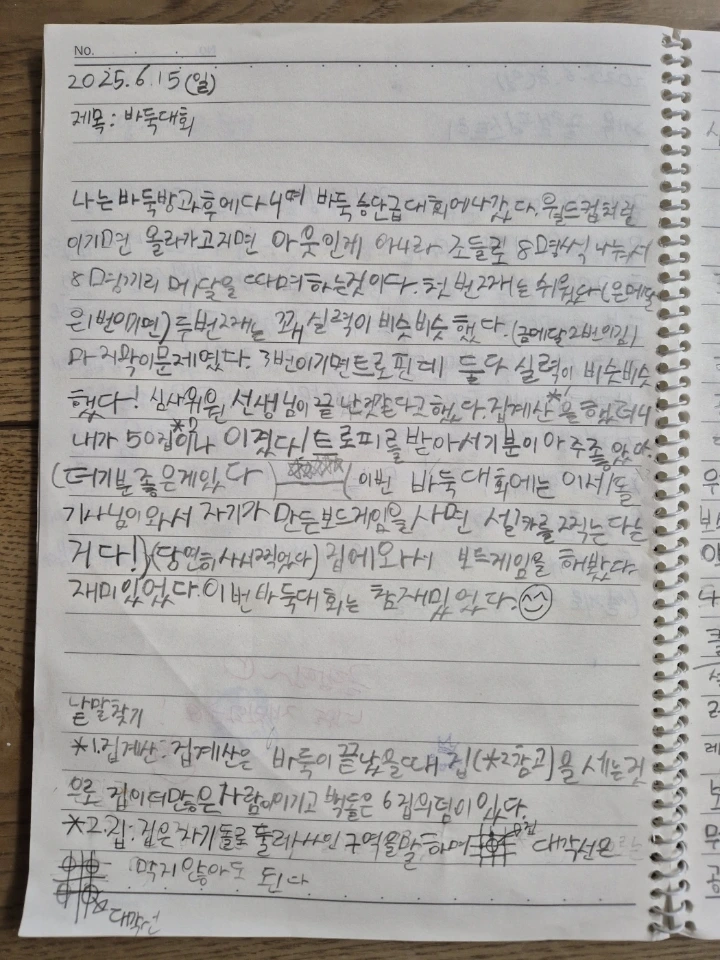 No.
2025.6.15(일)
제목: 바둑대회
나는 바둑방과후에 다니며 바둑 승단급 대회에 나갔다. 월드컵처럼
이기면 올라가고 지면 아웃인게 아니라 조들로 8명씩 나눠서
8명끼리 메달을 따며 하는것이다. 첫번째는 쉬웠다(은메달
은1번이기면) 두번째는 꽤 실력이 비슷비슷 했다.(금메달2번이김)
마지막이 문제였다. 3번이기면트로핀데 둘다 실력이 비슷비슷
했다! 심사위원 선생님이 끝난것같다고했다. 집계산*1을 했더니
내가 50집*2이나 이겼다! 트로피를 받아서 기분이 아주좋았다.
(더기분좋은게있다 (이번 바둑대회에는 이세돌
기사님이와서 자기가 만든보드게임을사면 설카를2찍는다는
거다!)(당연히사서찍었다) 집에와서 보드게임을 해봤다.
재미있었다. 이번바둑대회는 참재밌었다.
낱말찾기
*1.집계산: 집계산은 바둑이 끝났을때 집(*2참고)을 세는것
으로 집이더많은 사람이이기고 백돌은 6집의덤이있다.
*2.집: 집은자기돌로 둘러싸인 구역을말하며 집 대각선은
막지않아도 된다
대각선